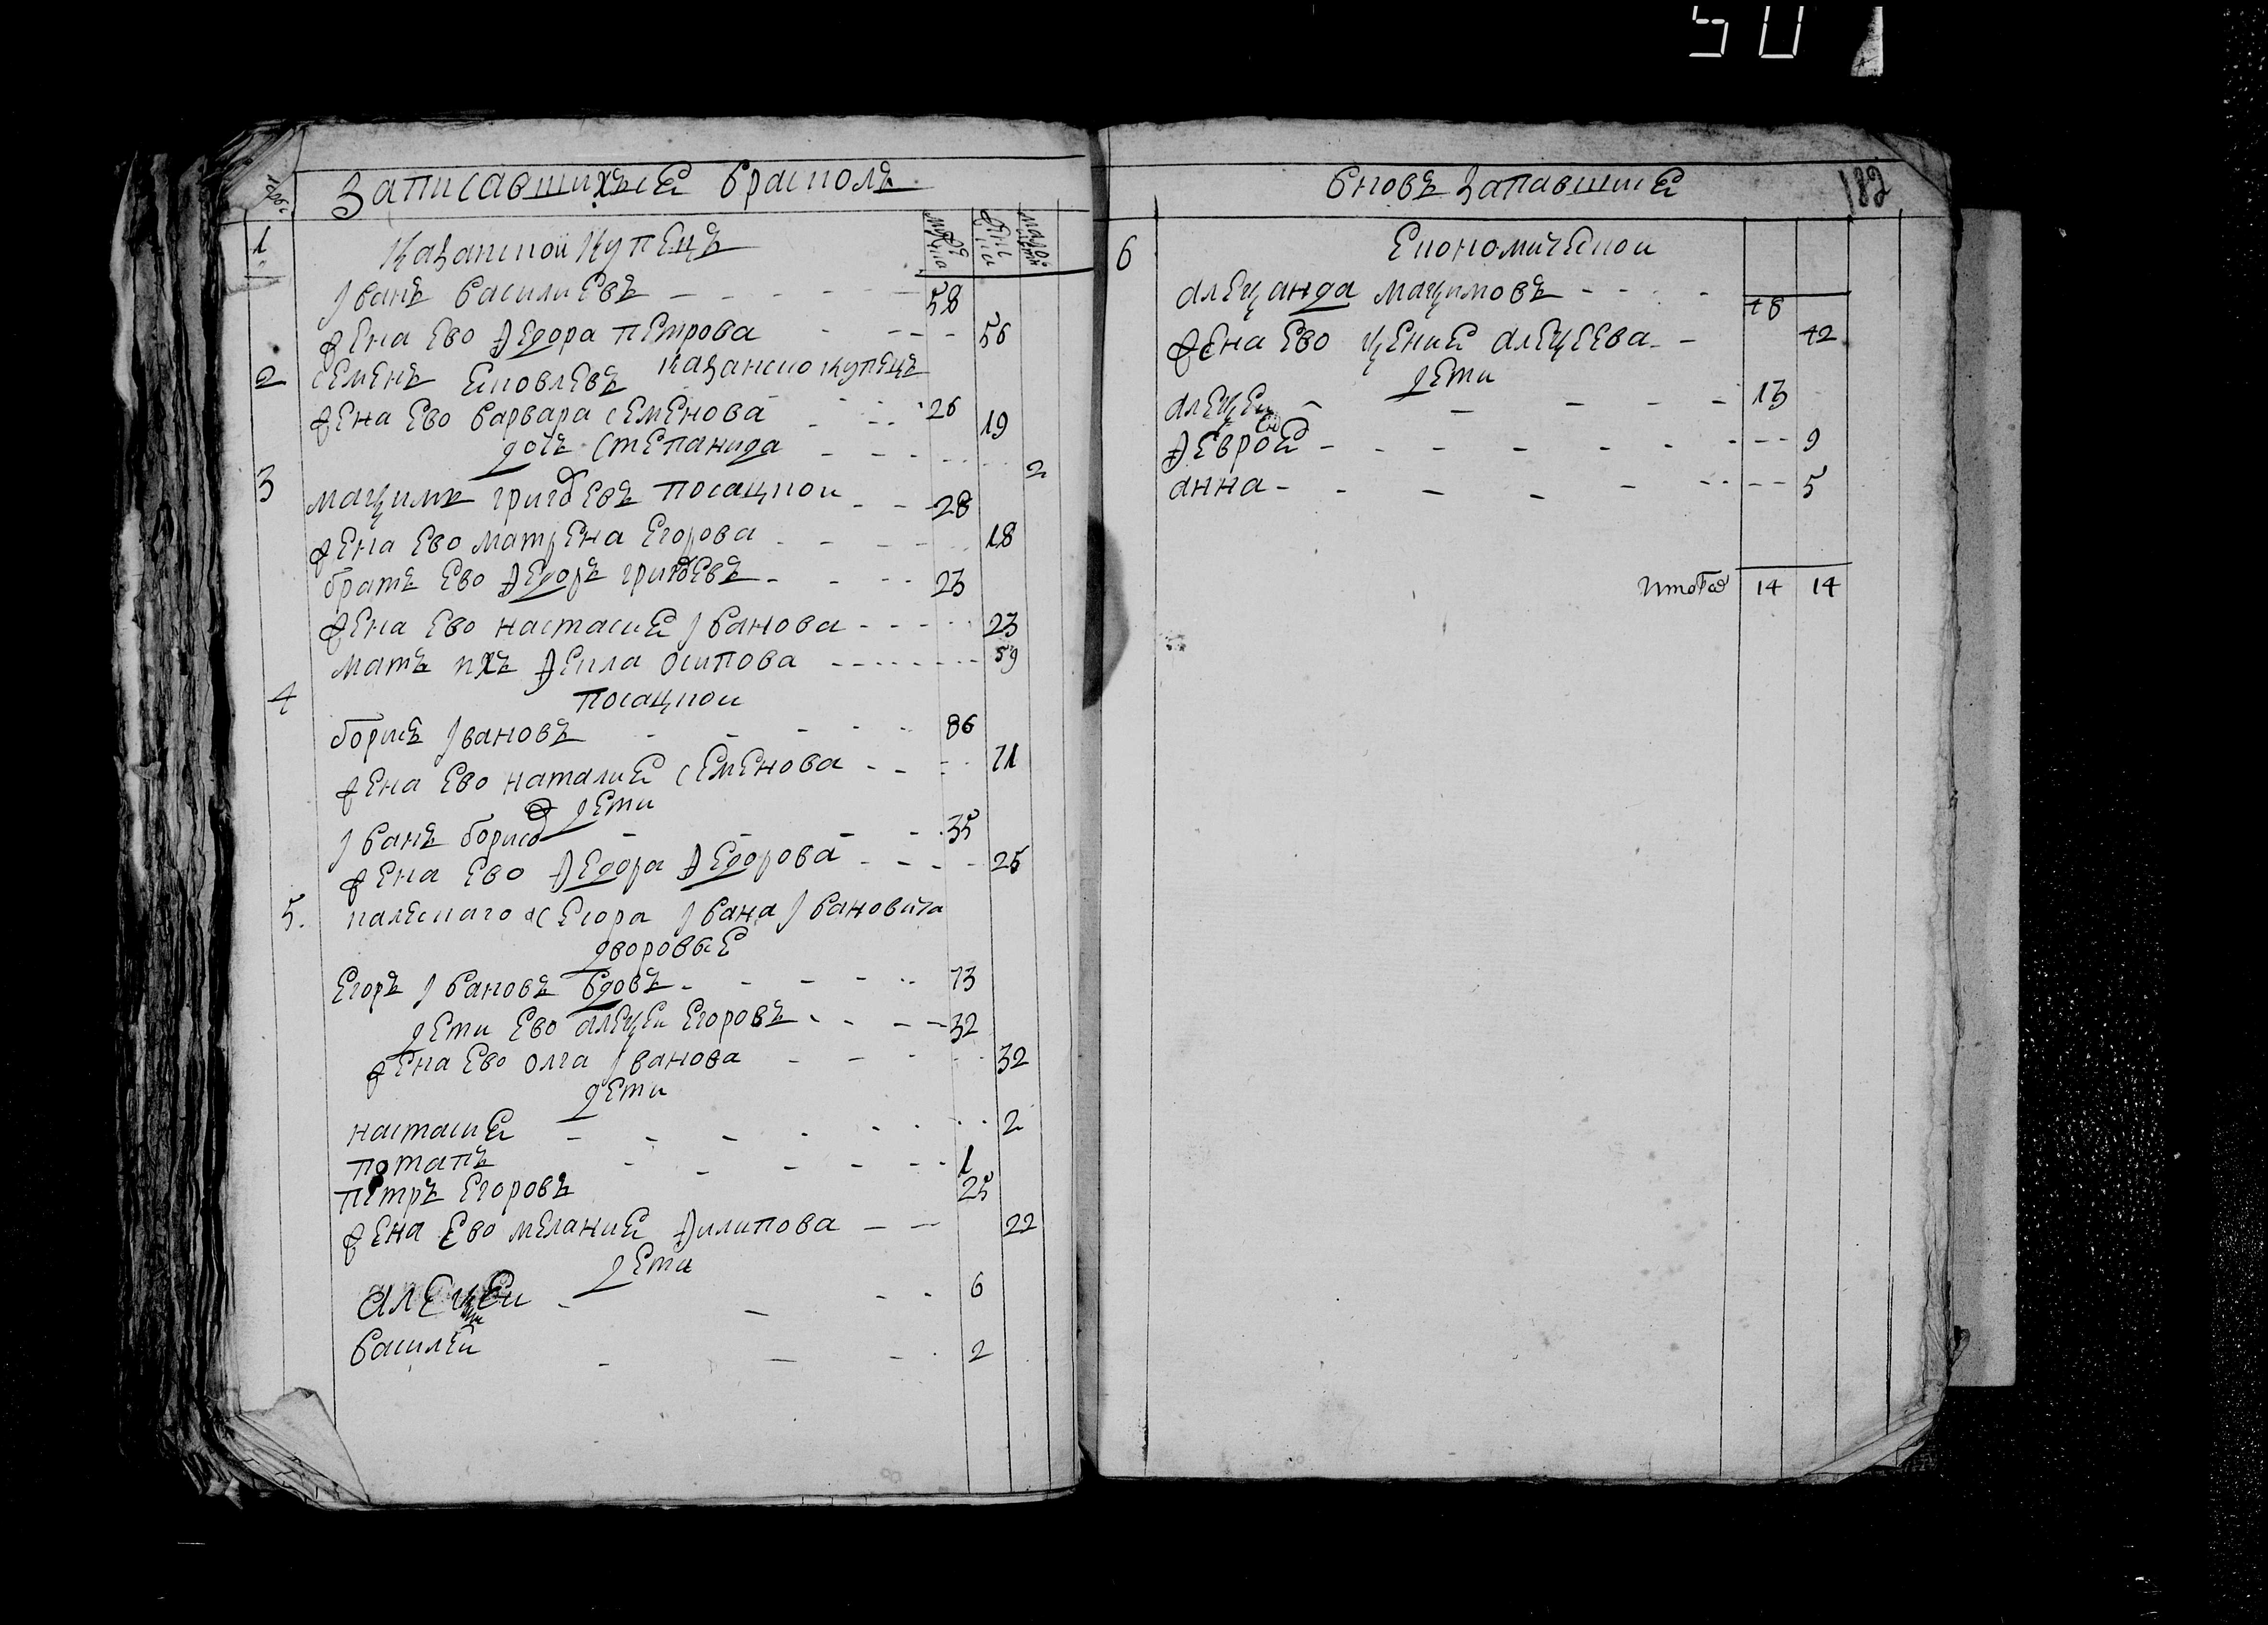 50
Записавшихъся врасколъ
Казанской Купецъ
мужеска
женска
малолетн
1
Иванъ василиевъ 58
жена ево Федора петрова 56
2 семенъ Яковлевъ казанско купецъ 26
жена ево варвара семенова 19
дочь степанида 2
3 макцимъ григоревъ посацкои 28
жена ево матрена Егорова 18
братъ ево Федоръ григоревъ 23
жена ево настасия Иванова 23
мать ихъ Фекла осипова 59
4 посацкои
борисъ Ивановъ 86
жена ево наталия семенова 71
дети
Иванъ борисов 35
жена ево Федора Федорова 25
5. Ивана Ивановича
дворовые
Егоръ Ивановъ вдовъ 73
дети ево алеѯеи Егоровъ 32
жена ево олга Иванова 32
дети
настасия 2
потапъ 1
петръ Егоровъ 25
жена Ево мелания Филипова 22
дети
алеѯеи 6
василеи 2
вновъ запавшия
182
6 Економическои
алеѯанда маѯимовъ 48
жена ево ѯения алеѯеева 42
дети
алеѯеи 13
Феврония 9
анна 5
итого 14 14